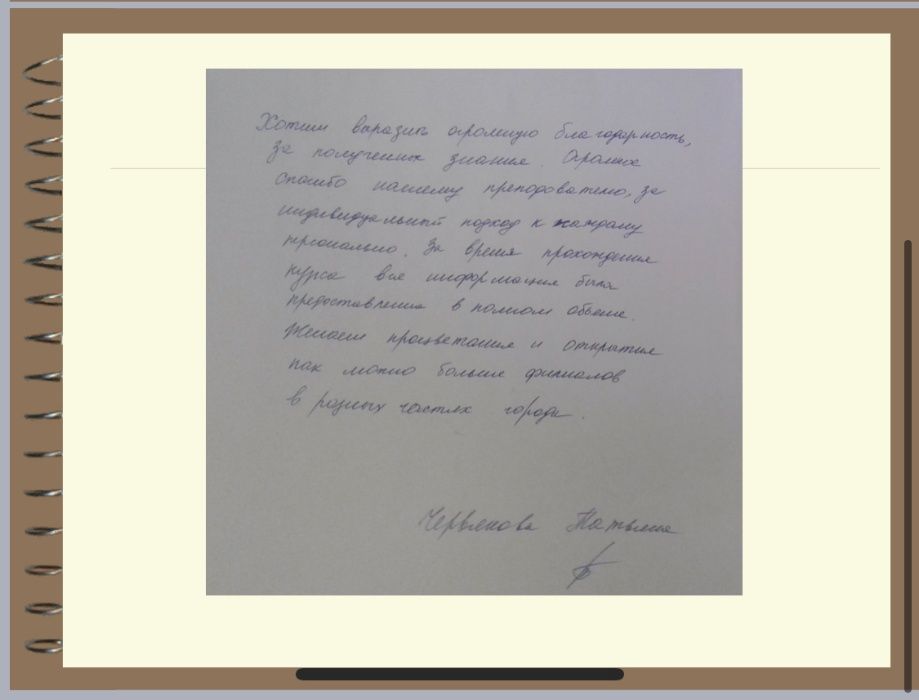 Хотим выразить огромную благодарность,
за полученных знания. Огромное
спасибо нашему преподователю, за
индивидуальный подход к каждому
персонально. За время прохождения
курса вся информация была
предоставлена в полном объеме.
Желаем процветания и открытия
как можно больше филиалов
в разных частях города.
Червякова Татьяна